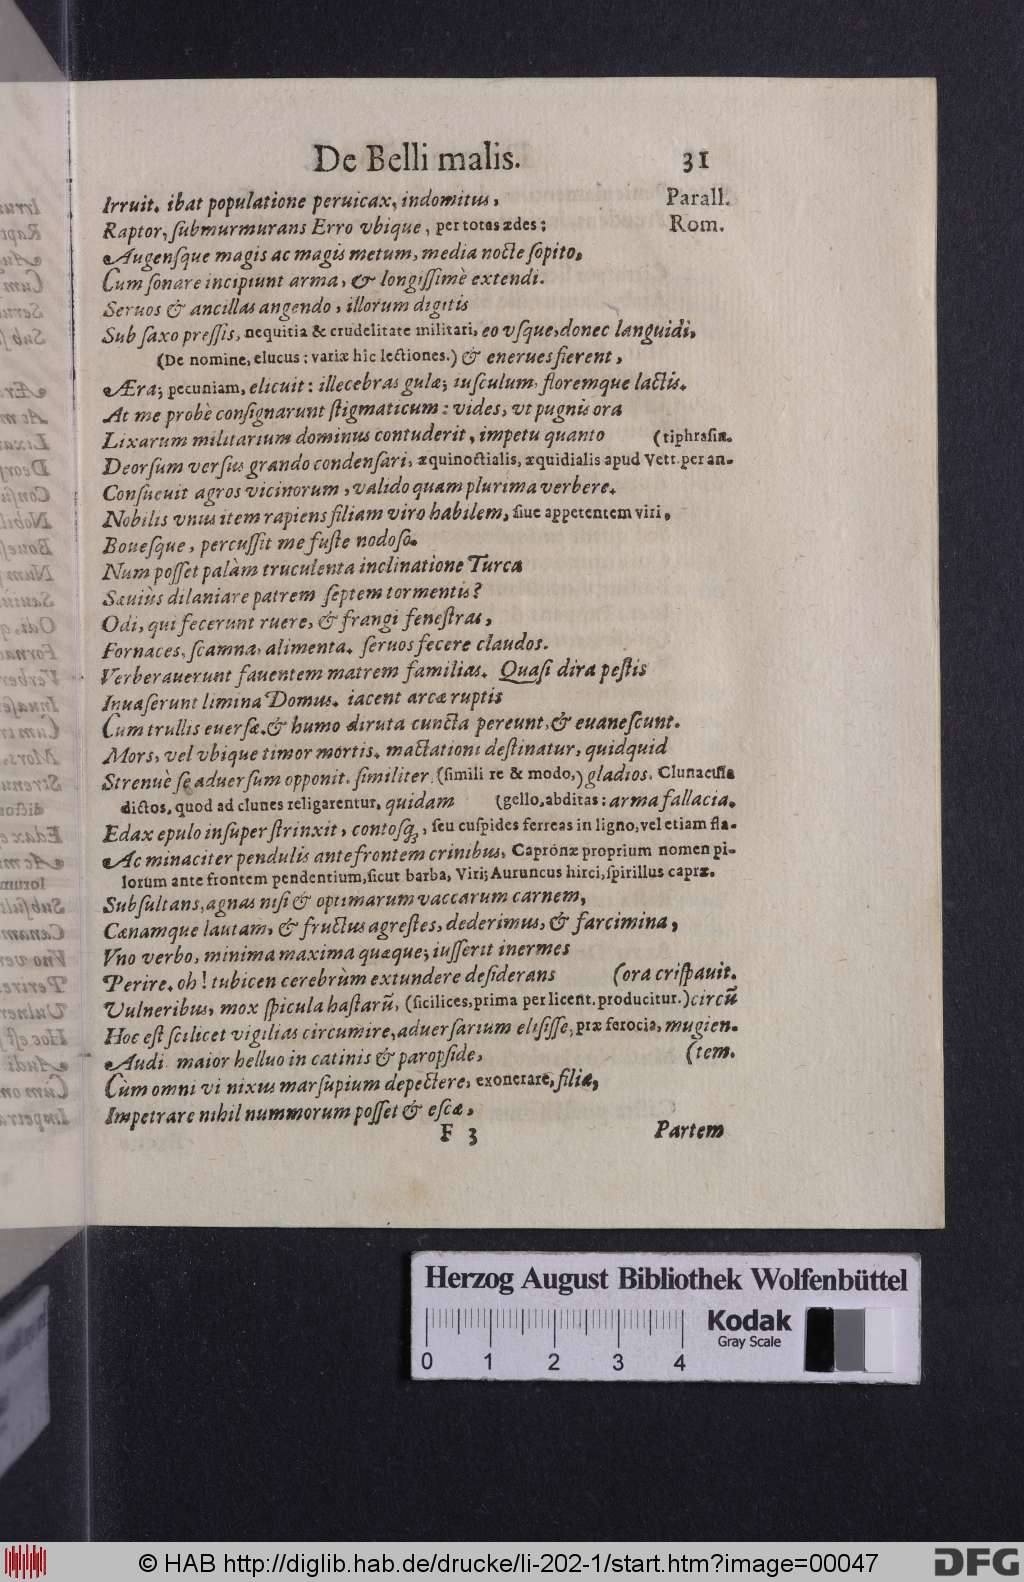 De Belli malis. 31
Parall.
Rom.
Irruit. ibat populatione peruicax, indomitus,
Raptor, ſubmurmurans Erro vbique, per totas ædes;
Augenſque magis ac magis metum, media nocte ſopito.
Cum ſonare incipiunt arma, & longiſſimè extendi.
Seruos & ancillas angendo, illorum digitis
Sub ſaxo preſſis, nequitia & crudelitate militari, eo vſque, donec languidi,
(De nomine, elucus: variæ hic lectiones.) & enerues fierent,
Æra; pecuniam, elicuit: illecebras gulæ; iuſculum, floremque lactis.
At me probè conſignarunt ſtigmaticum: vides, vt pugnis ora
Lixarum militarium dominus contuderit, impetu quanto (tiphraſin.
Deorſum verſus grando condenſari, æquinoctialis, æquidialis apud Vett. per an-
Conſueuit agros vicinorum, valido quam plurima verbere.
Nobilis vnus item rapiens filiam viro habilem, ſiue appetentem viri,
Boueſque, percuſſit me fuſte nodoſo.
Num poſſet palàm truculenta inclinatione Turca
Sæuiùs dilaniare patrem ſeptem tormentis?
Odi, qui fecerunt ruere, & frangi feneſtras,
Fornaces, ſcamna, alimenta. ſeruos fecere claudos.
Verberauerunt fauentem matrem familias. Quaſi dira peſtis
Inuaſerunt limina Domus. iacent arcæ ruptis
Cum trullis euerſæ. & humo diruta cuncta pereunt, & euaneſcunt.
Mors, vel vbique timor mortis. mactationi deſtinatur, quidquid
Strenuè ſe aduerſum opponit. ſimiliter, (ſimili re & modo,) gladios. Clunacula
dictos, quod ad clunes religarentur, quidam (gello, abditas: arma fallacia.
Edax epulo inſuper ſtrinxit, contoſq;, ſeu cuſpides ferreas in ligno, vel etiam fla-
Ac minaciter pendulis ante frontem crinibus, Capronæ proprium nomen pi-
lorum ante frontem pendentium, ſicut barba, Viri; Auruncus hirci, ſpirillus capræ.
Subſultans, agnas niſi & optimarum vaccarum carnem,
Cænamque lautam, & fructus agreſtes, dederimus, & farcimina,
Vno verbo, minima maxima quæque; iuſſerit inermes
Perire. oh! tubicen cerebrùm extundere deſiderans (ora criſpauit.
Vulneribus, mox ſpicula haſtarū, (ſicilices, prima per licent. producitur.) circū
Hoc eſt ſcilicet vigilias circumire, aduerſarium eliſiſſe, præ ferocia, mugien-
Audi maior helluo in catinis & paropſide, (tem.
Cùm omni vi nixus marſupium depectere, exonerare, filiæ,
Impetrare nihil nummorum poſſet & eſcæ,
F 3 Partem
Herzog August Bibliothek Wolfenbüttel
0 1 2 3 4
Kodak
Gray Scale
© HAB http://diglib.hab.de/drucke/li-202-1/start.htm?image=00047
DFG